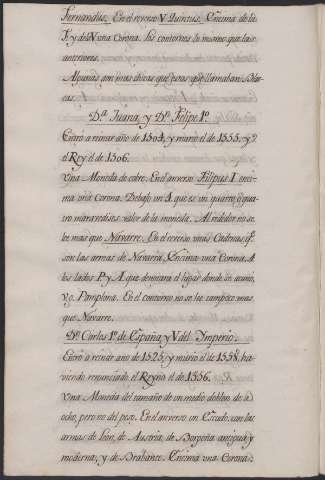 Fernandus. En el reverso V. Quintus. Encima de la
F. y de la V. una Corona. Los contornos lo mismo que las
anteriores.
Algunas son mas chicas que estas que llamaban
Dª. Juana, y Dⁿ. Felipe 1º.
Entró a reinar año de 1504, y murió el de 1555, y
el Rey el de 1506.
Una Moneda de cobre. En el anverso Filipus I enci-
ma una Corona. Debajo un 4 que es un quarto, o qua-
tro maravedises valor de la moneda. Al rededor no se
lee mas que Navarre. En el reverso unas Cadenas qᵉ.
son las armas de Navarra, Encima una Corona. A
los lados P. y A que denotara el lugar donde se acuñó,
v.g. Pamplona. En el contorno no se lee tampoco mas
que Navarre.
Dⁿ. Carlos 1º. de España, y V. del Ymperio.
Entró a reinar año de 1525, y murió el de 1558, ha-
viendo renunciado el Reyno el de 1556.
Una Moneda del tamaño de un medio doblon de a
ocho, pero no del peso. En el anverso un Escudo con las
armas de Leon, de Austria, de Borgoña antigua y
moderna, y de Brabante. Encima una Corona: